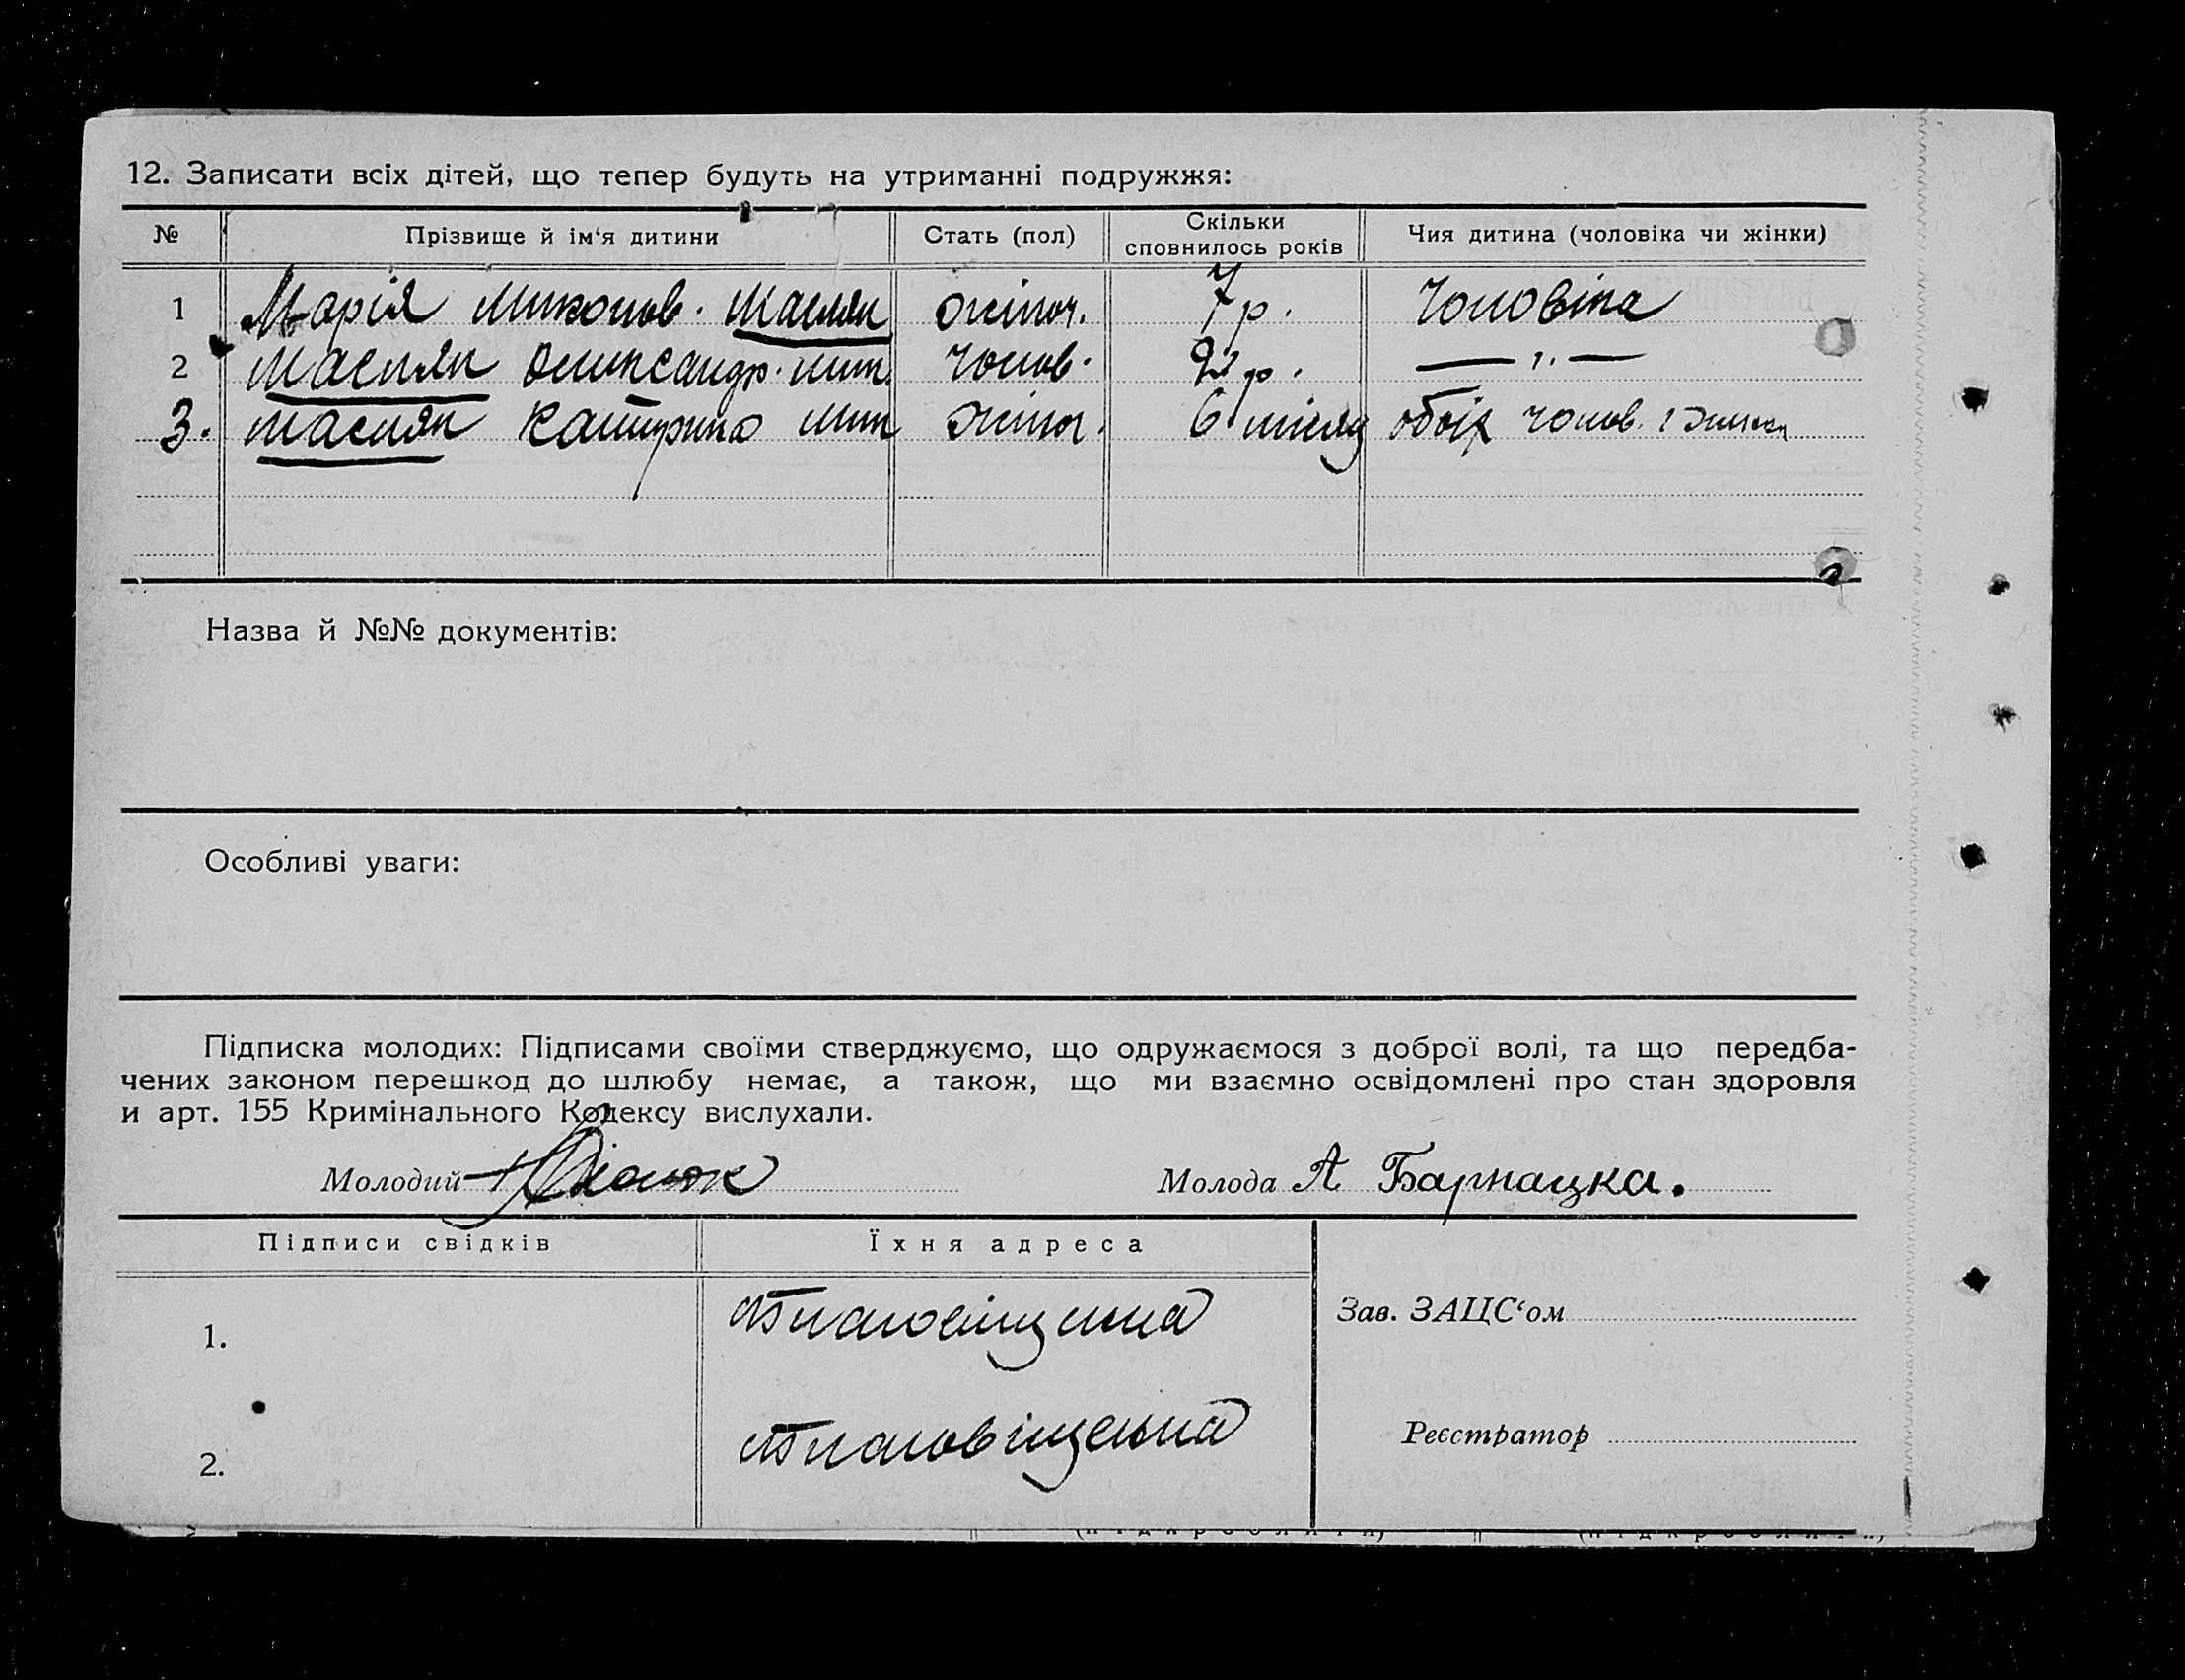 12. Записати всіх дітей, що тепер будуть на утриманні подружжя:
№ Прізвище й ім‘я дитини Стать (пол) Скільки сповнилось років Чия дитина (чоловіка чи жінки)
1 Марія Миколов. Масляк жіноч. 7 р. Чоловіка
2 Масляк Олександр. Мик. чолов. р. — „ —
3. Масляк Катирина Мик жіноч. 6 місяц обоїх чолов. і жінки
Назва й №№ документів:
Особливі уваги:
Підписка молодих: Підписами своїми стверджуємо, що одружаємося з доброї волі, та що передба-
чених законом перешкод до шлюбу немає, а також, що ми взаємно освідомлені про стан здоровля
и арт. 155 Кримінального Кодексу вислухали.
Молодий Молода А Барнацка.
Підписи свідків Їхня адреса
1. Зав. ЗАЦС‘ом
2. Реєстратор
(підкреслити) (підкреслити)